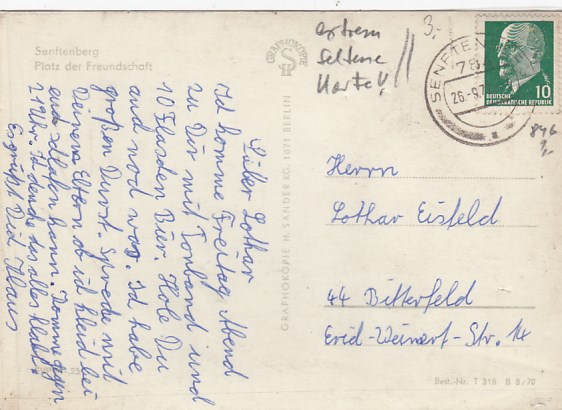 Senftenberg
Platz der Freundschaft
GRAPHOKOPIE
extrem
seltene
Karte!!
3,-
SENFTEN
26.-9.7
10
DEUTSCHE
DEMOKRATISCHE REPUBLIK
846
Lieber Lothar
Ich komme Freitag Abend
zu Dir mit Tonband und
10 Flaschen Bier. Hole Du
auch noch was. Ich habe
großen Durst. Spreche mit
Deinen Eltern ob ich bei
euch schlafen kann. Komme gegen
21 Uhr. Ich denke das alles klappt.
Es grüßt Dich Klaus
GRAPHOKOPIE H. SANDER KG, 1071 BERLIN
Herrn
Lothar Eisfeld
44 Bitterfeld
Erich-Weinert-Str. 14
Best.-Nr. T 318 B 8/70